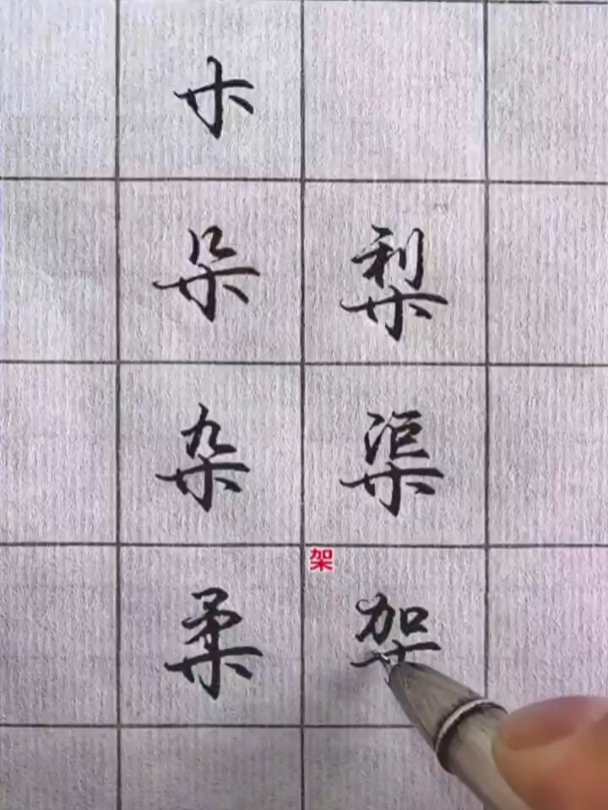 木
朵 梨
杂 渠
架
柔 架